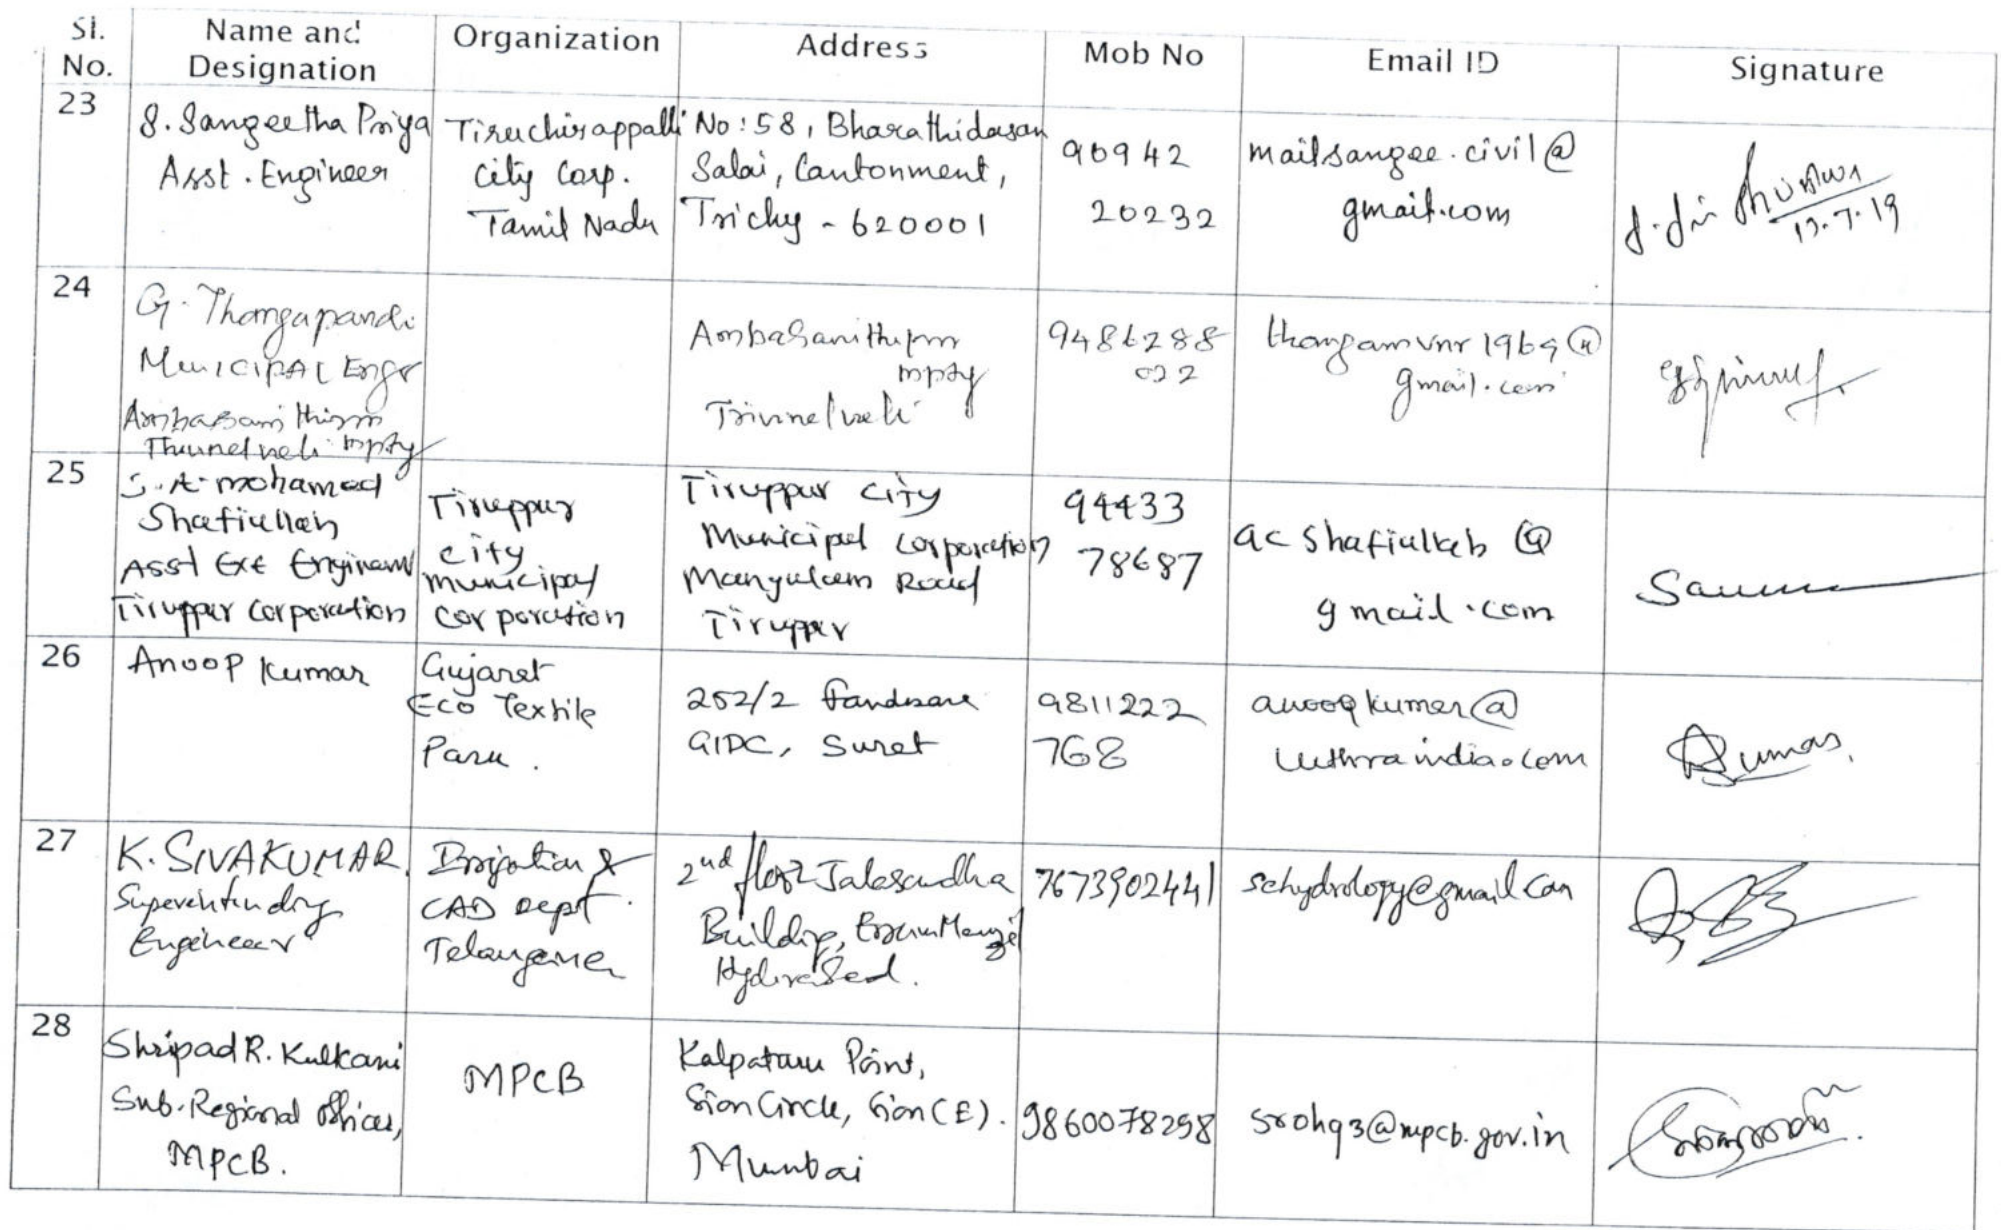 Sl. No.
Name and Designation
Organization
Address
Mob No
Email ID
Signature
23
S. Sangeetha Priya
Asst. Engineer
Tiruchirappalli
City Corp.
Tamil Nadu
No: 58, Bharathidasan
Salai, Cantonment,
Trichy - 620001
96942
20232
mailsangee.civil@
gmail.com
24
G. Thangapandi
Municipal Engr
mpty
mpty
9486288
022
thangamvnr1969@
gmail.com
25
S.A. mohamed
Shafiullah
Asst Exe Engineer
Tiruppur Corporation
Tiruppur
city
municipal
corporation
Tiruppur City
Municipal Corporation
Mangalam Road
Tiruppur
94433
78687
ac shafiullah @
gmail.com
26
Anoop Kumar
Gujarat
Eco Textile
Park.
252/2
GIDC, Surat
9811222
768
anoopkumar@
luthraindia.com
27
K. SIVAKUMAR.
Superintending
Engineer
Irrigation &
CAD Dept.
Telangana
2nd floor Jalasoudha
Building, Errum Manzil
Hyderabad.
7673902441
sehydrology@gmail.com
28
Shripad R. Kulkani
Sub-Regional Officer,
MPCB.
MPCB
Kalpataru Point,
Sion Circle, Sion (E).
Mumbai
9860078298
srohq3@mpcb.gov.in